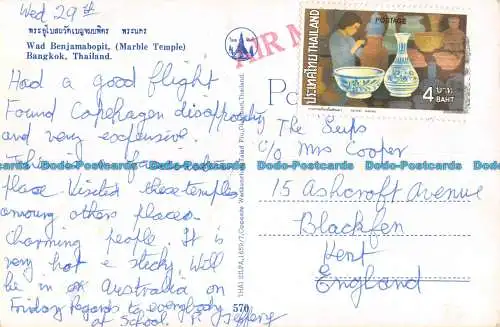 Wed 29th
พระอุโบสถวัดเบญจมบพิตร พระนคร
Wad Benjamabopit, (Marble Temple)
Bangkok, Thailand.
Had a good flight
Found Copenhagen
and very expensive.
This is a
place. Visited these temples
among other places
charming people. It is
very hot & sticky. Will
be in Australia on
Friday Regards to everybody
at School.
AIR M
POSTAGE
ประเทศไทย THAILAND
4 บาท
BAHT
The Seips
c/o Mrs Cooper
15 Ashcroft Avenue
Blackfen
Kent
England
570
Dodo-Postcards Dodo-Postcards Dodo-Postcards Dodo-Postcards